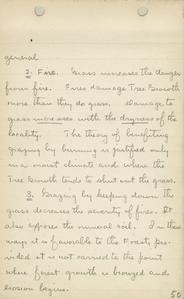 general
2. Fire. Grass increases the danger
from fire. Fires damage Tree Growth
more than they do grass. Damage to
grass increases with the dryness of the
locality. The theory of benefiting
grazing by burning is justified only
in a moist climate and where the
Tree Growth tends to shut out the grass.
3. Grazing by keeping down the
grass decreases the severity of fires. It
also exposes the mineral soil. In this
way it is favorable to the Forest, pro-
vided it is not carried to the point
where forest growth is browsed and
erosion begins.
50